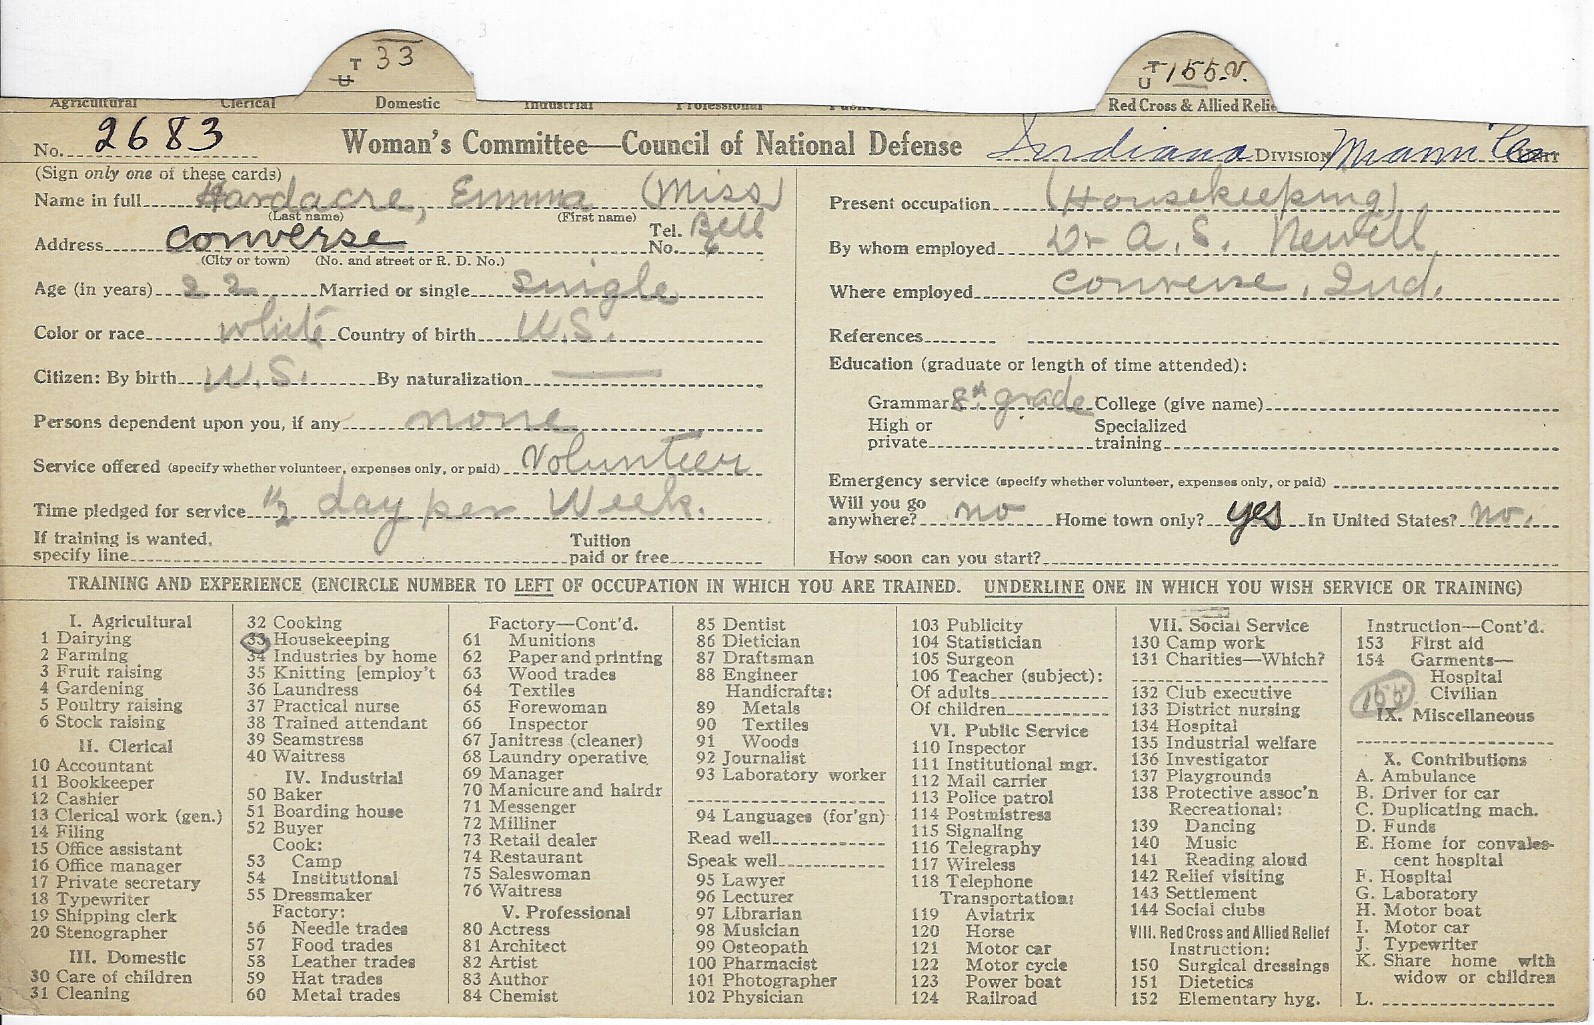 T 33
U
T 155.V.
U
Agricultural Clerical Domestic Industrial Professional Red Cross & Allied Relie
No. 2683 Woman's Committee—Council of National Defense Indiana DIVISION Miami Co. UNIT
(Sign only one of these cards)
Name in full Hardacre, Emma (Miss)
(Last name) (First name)
Address Converse Tel. No. Bell
(City or town) (No. and street or R. D. No.)
Age (in years) 22 Married or single Single
Color or race white Country of birth U.S.
Citizen: By birth U.S. By naturalization
Persons dependent upon you, if any none
Service offered (specify whether volunteer, expenses only, or paid) Volunteer
Time pledged for service 1/2 day per Week.
If training is wanted, specify line Tuition paid or free
Present occupation (Housekeeping)
By whom employed Dr A. S. Newell
Where employed Converse, Ind.
References
Education (graduate or length of time attended):
Grammar 8th grade College (give name)
High or private Specialized training
Emergency service (specify whether volunteer, expenses only, or paid)
Will you go anywhere? no Home town only? yes In United States? no.
How soon can you start?
TRAINING AND EXPERIENCE (ENCIRCLE NUMBER TO LEFT OF OCCUPATION IN WHICH YOU ARE TRAINED. UNDERLINE ONE IN WHICH YOU WISH SERVICE OR TRAINING)
I. Agricultural
1 Dairying
2 Farming
3 Fruit raising
4 Gardening
5 Poultry raising
6 Stock raising
II. Clerical
10 Accountant
11 Bookkeeper
12 Cashier
13 Clerical work (gen.)
14 Filing
15 Office assistant
16 Office manager
17 Private secretary
18 Typewriter
19 Shipping clerk
20 Stenographer
III. Domestic
30 Care of children
31 Cleaning
32 Cooking
33 Housekeeping
34 Industries by home
35 Knitting [employ't
36 Laundress
37 Practical nurse
38 Trained attendant
39 Seamstress
40 Waitress
IV. Industrial
50 Baker
51 Boarding house
52 Buyer
Cook:
53 Camp
54 Institutional
55 Dressmaker
Factory:
56 Needle trades
57 Food trades
58 Leather trades
59 Hat trades
60 Metal trades
Factory—Cont'd.
61 Munitions
62 Paper and printing
63 Wood trades
64 Textiles
65 Forewoman
66 Inspector
67 Janitress (cleaner)
68 Laundry operative
69 Manager
70 Manicure and hairdr
71 Messenger
72 Milliner
73 Retail dealer
74 Restaurant
75 Saleswoman
76 Waitress
V. Professional
80 Actress
81 Architect
82 Artist
83 Author
84 Chemist
85 Dentist
86 Dietician
87 Draftsman
88 Engineer
Handicrafts:
89 Metals
90 Textiles
91 Woods
92 Journalist
93 Laboratory worker
94 Languages (for'gn)
Read well
Speak well
95 Lawyer
96 Lecturer
97 Librarian
98 Musician
99 Osteopath
100 Pharmacist
101 Photographer
102 Physician
103 Publicity
104 Statistician
105 Surgeon
106 Teacher (subject):
Of adults
Of children
VI. Public Service
110 Inspector
111 Institutional mgr.
112 Mail carrier
113 Police patrol
114 Postmistress
115 Signaling
116 Telegraphy
117 Wireless
118 Telephone
Transportation:
119 Aviatrix
120 Horse
121 Motor car
122 Motor cycle
123 Power boat
124 Railroad
VII. Social Service
130 Camp work
131 Charities—Which?
132 Club executive
133 District nursing
134 Hospital
135 Industrial welfare
136 Investigator
137 Playgrounds
138 Protective assoc'n
Recreational:
139 Dancing
140 Music
141 Reading aloud
142 Relief visiting
143 Settlement
144 Social clubs
VIII. Red Cross and Allied Relief
Instruction:
150 Surgical dressings
151 Dietetics
152 Elementary hyg.
Instruction—Cont'd.
153 First aid
154 Garments—
Hospital
155 Civilian
IX. Miscellaneous
X. Contributions
A. Ambulance
B. Driver for car
C. Duplicating mach.
D. Funds
E. Home for convales-
cent hospital
F. Hospital
G. Laboratory
H. Motor boat
I. Motor car
J. Typewriter
K. Share home with
widow or children
L.